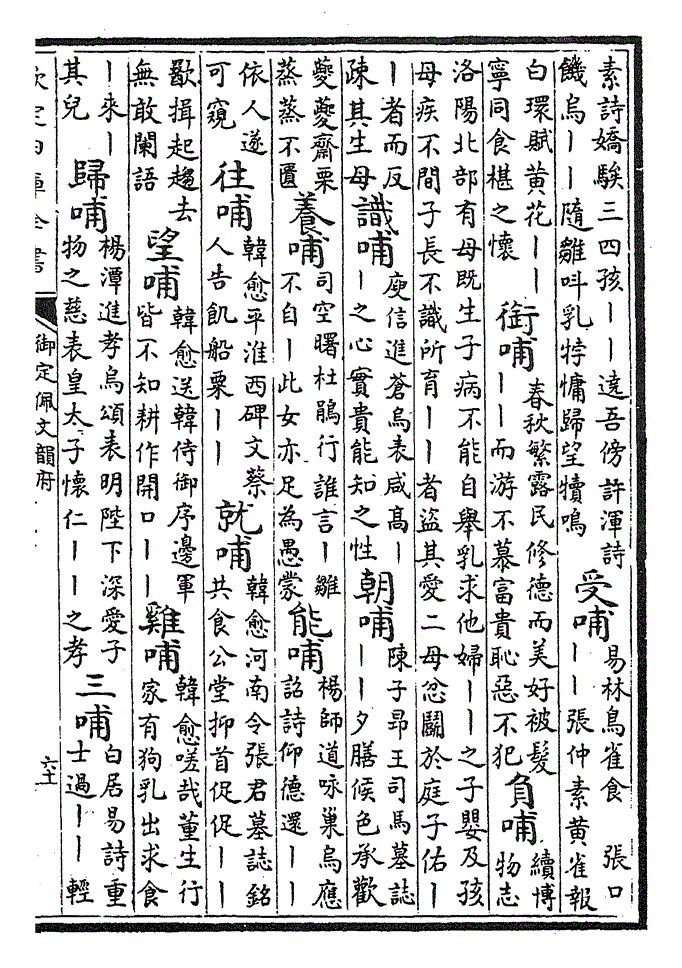 素詩嬌騃三四孩——遶吾傍許渾詩
饑烏——隨雛叫乳牸慵歸望犢鳴
受哺
易林鳥雀食 張口
——張仲素黃雀報
白環賦黃花——
寧同食椹之懷
銜哺
春秋繁露民修德而美好被髮
——而游不慕富貴恥惡不犯
負哺
續博
物志
洛陽北部有母既生子病不能自舉乳求他婦——之子嬰及孩
母疾不間子長不識所育——者盜其愛二母忿鬭於庭子佑—
—者而反
疎其生母
識哺
庾信進蒼烏表咸高—
—之心實貴能知之性
朝哺
陳子昂王司馬墓誌
——夕膳候色承歡
夔夔齋栗
蒸蒸不匱
養哺
司空曙杜鵑行誰言—雛
不自—此女亦足為愚蒙
能哺
楊師道咏巢烏應
詔詩仰德還——
依人遂
可窺
往哺
韓愈平淮西碑文蔡
人告飢船粟——
就哺
韓愈河南令張君墓誌銘
共食公堂抑首促促——
歠揖起趨去
無敢闌語
望哺
韓愈送韓侍御序邊軍
皆不知耕作開口——
雞哺
韓愈嗟哉董生行
家有狗乳出求食
—來—
其兒
歸哺
楊潭進孝烏頌表明陛下深愛子
物之慈表皇太子懷仁——之孝
三哺
白居易詩重
士過——輕
欽定四庫全書
御定佩文韻府